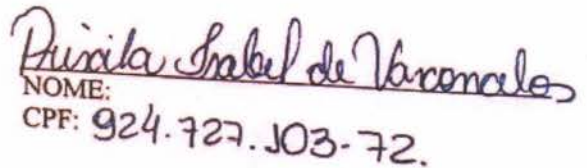 Priscila Isabel de Vasconcelos
NOME:
CPF: 924.727.103-72.